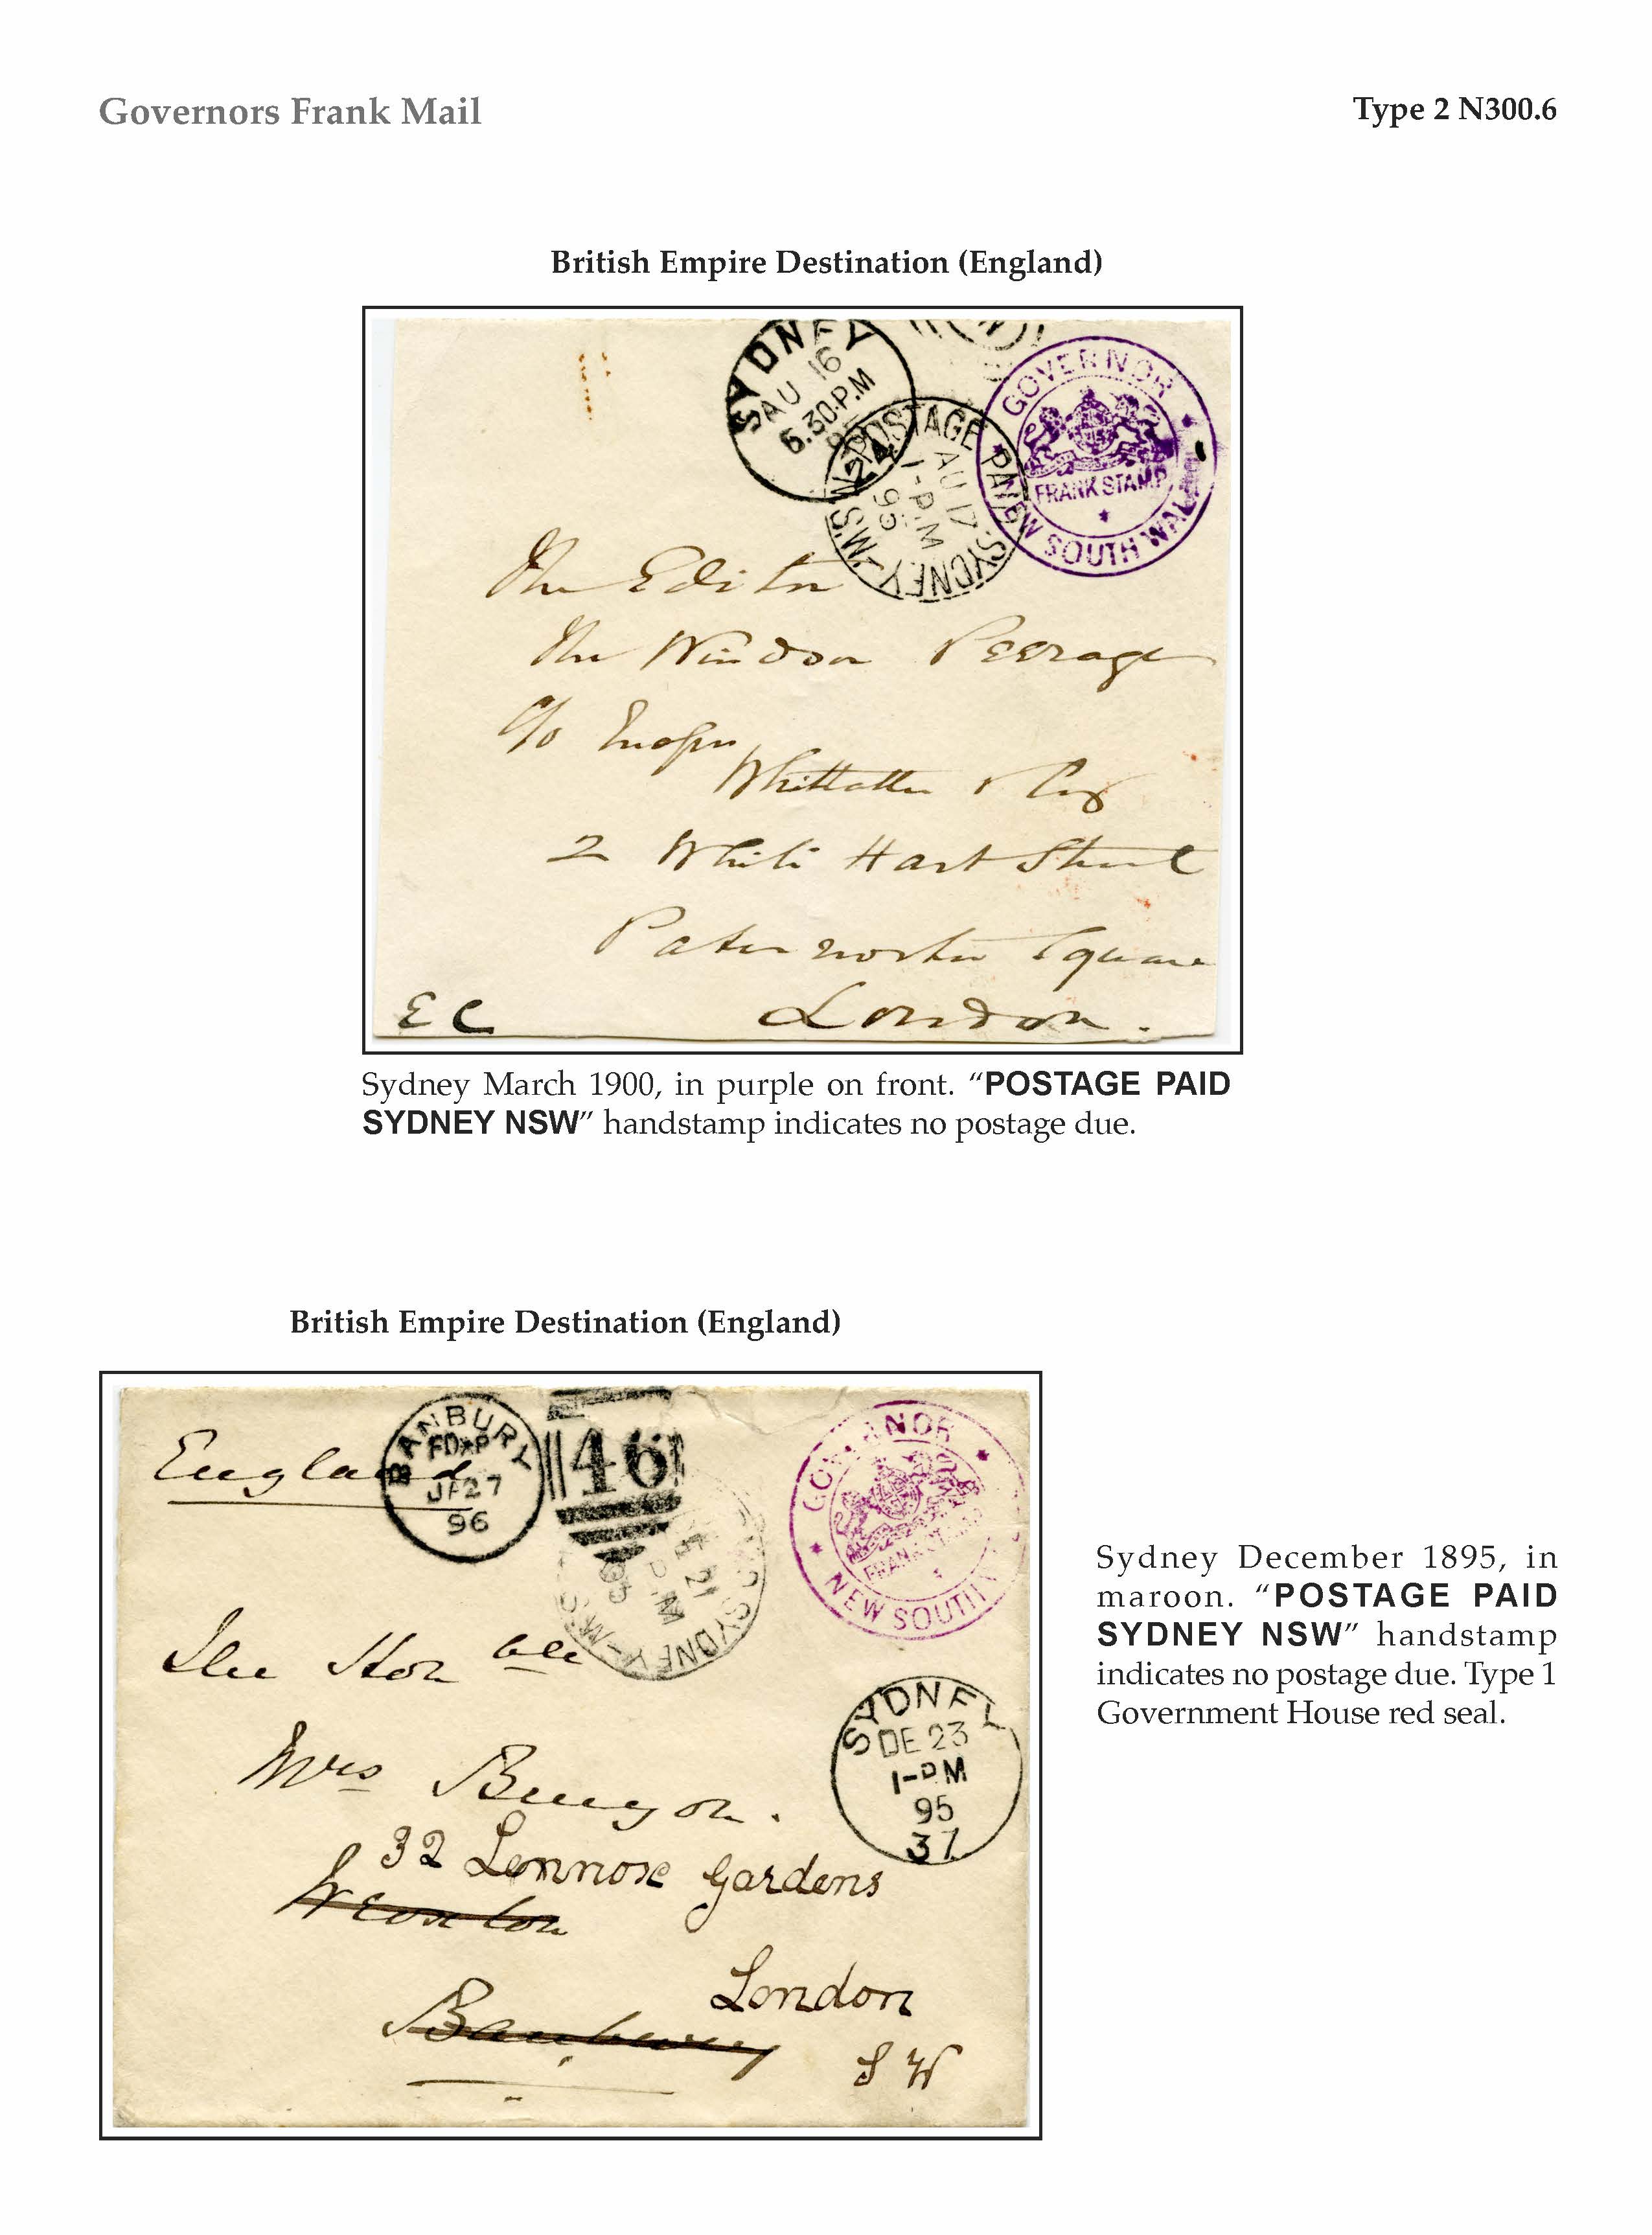 Governors Frank Mail
Type 2 N300.6
British Empire Destination (England)
SYDNEY
AU 16
6.30.P.M
95
24
POSTAGE PAID SYDNEY N.S.W.
AU 17
1-P.M
95
GOVERNOR
FRANK STAMP
NEW SOUTH WALES
The Editor
The Windsor Peerage
c/o Messrs
Whittaker & Co
2 White Hart Street
Paternoster Square
EC London.
Sydney March 1900, in purple on front. “POSTAGE PAID
SYDNEY NSW” handstamp indicates no postage due.
British Empire Destination (England)
England
BANBURY
JA 27
96
46
GOVERNOR
FRANK STAMP
NEW SOUTH
DE 21
P.M
95
SYDNEY
The Honble
Mrs Bunyon.
32 Lennox Gardens
Wroxton
London
Banbury
S W
SYDNEY
DE 23
1-PM
95
37
Sydney December 1895, in
maroon. “POSTAGE PAID
SYDNEY NSW” handstamp
indicates no postage due. Type 1
Government House red seal.